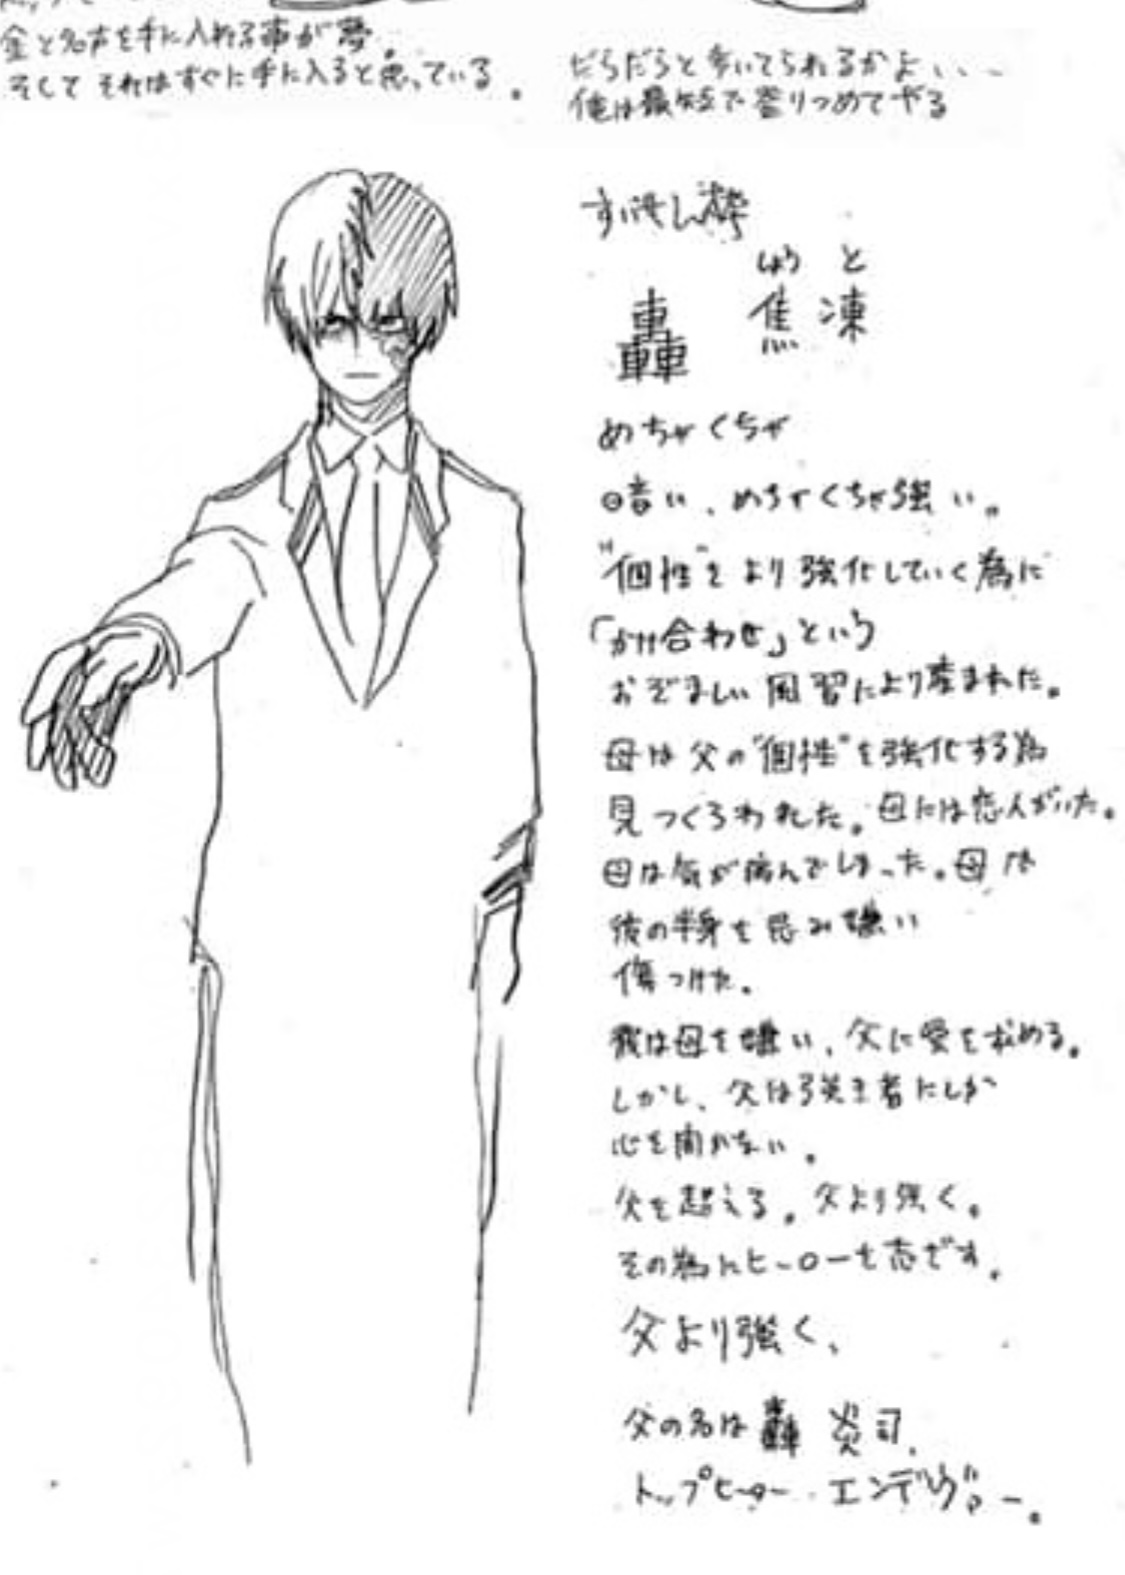 金と名声を手に入れる事が夢。
そして それはすぐに手に入ると思っている。
だらだらと歩いてられるかよ、、、
俺は最短で登りつめてやる
すいせん枠
しょう と
轟 焦凍
めちゃくちゃ
暗い、めちゃくちゃ強い。
"個性"をより強化していく為に
「かけ合わせ」という
おぞましい風習により産まれた。
母は父の"個性"を強化する為
見つくろわれた。母には恋人がいた。
母は気が病んでしまった。母は
彼の半身を忌み嫌い
傷つけた。
彼は母を嫌い、父に愛を求める。
しかし、父は強き者にしか
心を開かない。
父を超える。父より強く。
その為にヒーローを志ざす。
父より強く、
父の名は轟 炎司、
トップヒーロー エンデヴァー。